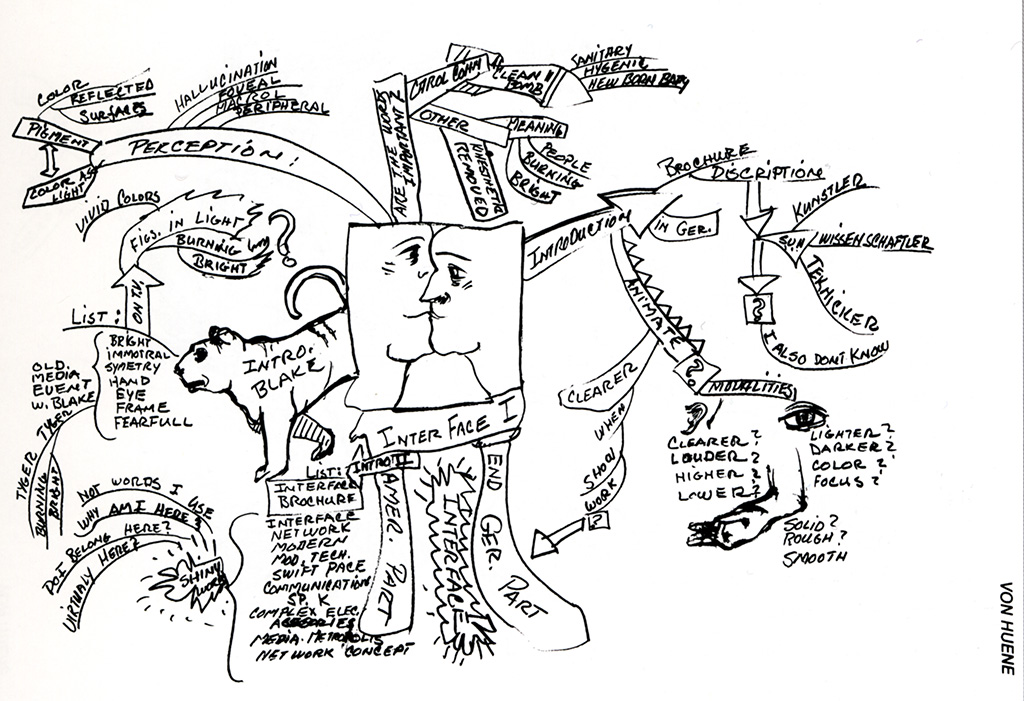 COLOR
REFLECTED
SURFACES
PIGMENT
COLOR AS
LIGHT
HALLUCINATION
FOVEAL
PERIPHERAL
PERCEPTION:
ARE THE WORDS
IMPORTANT?
CAROL COMM
CLEAN
BOMB
SANITARY
HYGENIC
NEW BORN BABY
OTHER
MEANING
PEOPLE
BURNING
BRIGHT
KINESTHETIC
REMOVED
BROCHURE
DISCRIPTION
INTRODUCTION
IN GER.
KUNSTLER
WISSENSCHAFTLER
TEKNICKER
?
I ALSO DONT KNOW
ANIMATE
?
MODALITIES
CLEARER?
LOUDER?
HIGHER?
LOWER?
LIGHTER?
DARKER?
COLOR?
FOCUS?
SOLID?
ROUGH?
SMOOTH
CLEARER
WHEN
SHOW
WORK
?
VIVID COLORS
FIGS. IN LIGHT
BURNING
BRIGHT
?
ON T.V.
LIST:
BRIGHT
IMMOTRAL
SYMETRY
HAND
EYE
FRAME
FEARFULL
OLD.
MEDIA
EVENT
W. BLAKE
TYGER
TYGER
BURNING
BRIGHT
INTRO.
BLAKE
INTERFACE I
LIST:
INTRO II
INTERFACE
BROCHURE
INTERFACE
NETWORK
MODERN
MOD. TECH.
SWIFT PACE
COMMUNICATION
SP. K
COMPLEX ELEC.
MEDIA. METROPOLIS
NETWORK CONCEPT
AMER PART
INTERFACES
END GER. PART
NOT WORDS I USE
WHY AM I HERE?
DO I BELONG HERE?
VIRTUALY HERE?
SHINY
WORD
VON HUENE